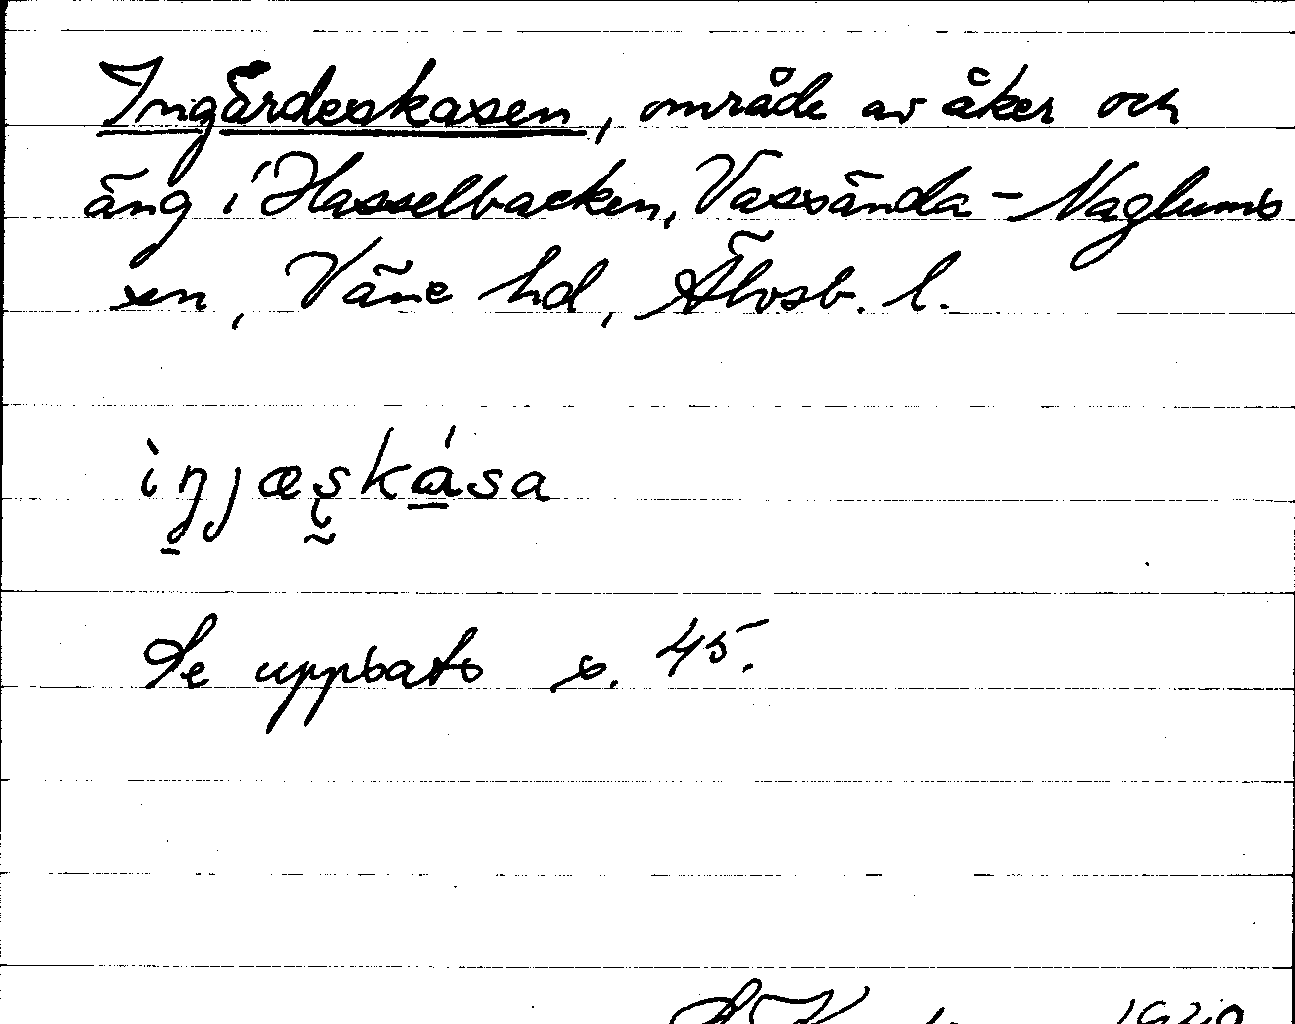 Ingärdeskasen, område av åker och
äng i Hasselbacken, Vassända-Naglums
sn, Väne hd, Älvsb. l.
ìŋjæskása
Se uppsats s. 45.